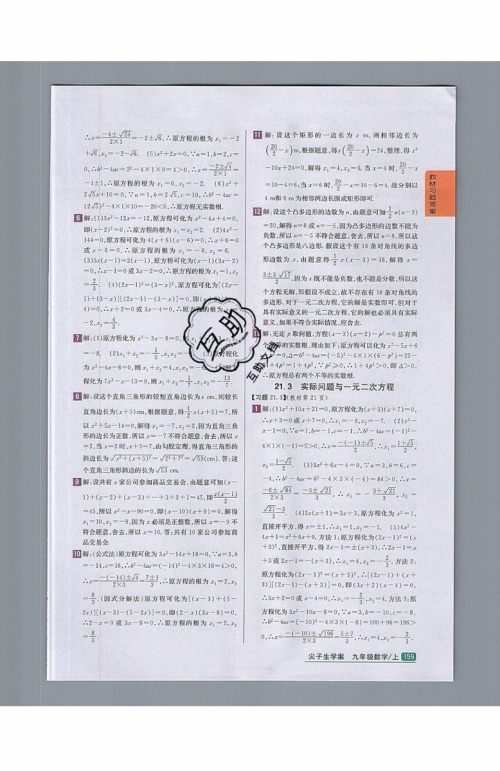 ∴x=(-4±√24)/(2×1)=-2±√6,∴原方程的根为 x₁=-2
+√6,x₂=-2-√6. (5)x²+2x=0,∵a=1,b=2,c=
0,∴b²-4ac=2²-4×1×0=4>0,∴x=
-1±1,∴原方程的根为 x₁=0,x₂=-2. (6)x²+
2√5x+10=0,∵a=1,b=2√5,c=10,∴b²-4ac=
(2√5)²-4×1×10=-20<0,∴原方程无实数根.
6 解:(1)3x²-12x=-12,原方程可化为 x²-4x+4=0,
即(x-2)²=0,∴原方程的根为 x₁=x₂=2. (2)4x²-
144=0,原方程可化为 4(x+6)(x-6)=0,∴x+6=0
或 x-6=0,∴原方程的根为 x₁=-6,x₂=6.
(3)3x(x-1)=2(x-1),原方程可化为(x-1)(3x-2)
=0,∴x-1=0 或 3x-2=0,∴原方程的根为 x₁=1,x₂=
(4)(2x-1)²=(3-x)²,原方程可化为[(2x-
1)+(3-x)][(2x-1)-(3-x)]=0,即
7 解:(1)原方程化为 x²-3x-8=0,
8 解:设这个直角三角形的较短直角边长为 x cm,则较长
直角边长为(x+5)cm.根据题意,得 1/2 x(x+5)=7,所
以 x²+5x-14=0,解得 x₁=-7,x₂=2,因为直角三角
形的边长为正数,所以 x=-7 不符合题意,舍去,所以 x
=2,当 x=2 时,x+5=7,由勾股定理,得直角三角形的
斜边长为 √(x²+(x+5)²)=√(2²+7²)=√53(cm).答:这
个直角三角形斜边的长为 √53 cm.
9 解:设共有 x 家公司参加商品交易会.由题意可知(x-
1)+(x-2)+(x-3)+…+3+2+1=45,即 x(x-1)/2
=45,所以 x²-x-90=0,即(x-10)(x+9)=0,解得
x₁=10,x₂=-9,因为 x 必须是正整数,所以 x=-9 不
符合题意,舍去,所以 x=10.答:共有 10 家公司参加商
品交易会.
10 解:(公式法)原方程可化为 3x²-14x+16=0,∵a=3,b
=-14,c=16,∴b²-4ac=(-14)²-4×3×16=4>0,
∴x=(-(-14)±√4)/(2×3)=(7±1)/3,∴原方程的根为 x₁=2,x₂=
8/3. (因式分解法)原方程可化为[(x-1)+(5-
2x)][(x-3)-(5-2x)]=0,即(2-x)(3x-8)=0,
∴2-x=0 或 3x-8=0,∴原方程的根为 x₁=2,x₂=
8/3.
11 解:设这个矩形的一边长为 x m,则相邻边长为
(20/2-x)m,根据题意,得 x(20/2-x)=24,整理,得 x²
-10x+24=0,解得 x₁=4,x₂=6.当 x=4 时,20/2-x
=10-4=6;当 x=6 时,20/2-x=10-6=4,故分别以
4 m和6 m为相邻两边长围成矩形即可.
12 解:设这个凸多边形的边数为 n,由题意可知 1/2 n(n-3)
=20,解得 n=8 或 n=-5,因为凸多边形的边数不能为
负数,所以 n=-5 不符合题意,舍去,所以 n=8,所以这
个凸多边形是八边形.假设这个有 18 条对角线的多边
形边数为 x,由题意得 1/2 x(x-3)=18,解得 x=
(3±3√17)/2.因为 x 既不能是负数,也不能是分数,所以这
个方程无解,即假设不成立,故不存在有 18 条对角线的
多边形.对于一元二次方程,它的解是实数即可,但对于
具有实际意义的一元二次方程,它的解也必须具有实际
意义,如果不符合实际情况,应舍去.
解:无论 p 取何值,方程(x-3)(x-2)-p²=0 总有两
的实数根.理由如下:原方程可以化为 x²-5x+6
-p²=0,Δ=b²-4ac=(-5)²-4×1×(6-p²)=25-
24+4p²=1+4p².∵p²≥0,∴1+4p²>0,即 Δ>0,
原方程总有两个不等的实数根.
21.3 实际问题与一元二次方程
【习题 21.3】(教材第 21 页)
1 解:(1)x²+10x+21=0,原方程化为(x+3)(x+7)=0,
∴x+3=0 或 x+7=0,∴x₁=-3,x₂=-7. (2)x²-
x-1=0,∵a=1,b=-1,c=-1,∴b²-4ac=(-1)²-
4×1×(-1)=5>0,∴x=(-(-1)±√5)/2,∴x₁=(1+√5)/2,
x₂=(1-√5)/2. (3)3x²+6x-4=0,∵a=3,b=6,c=
-4,∴b²-4ac=6²-4×3×(-4)=84>0,∴x=
(-6±√84)/(2×3)=(-3±√21)/3,∴x₁=-(3+√21)/3,x₂=
(√21-3)/3. (4)3x(x+1)=3x+3,原方程化为 x²=1,
直接开平方,得 x=±1,∴x₁=1,x₂=-1. (5)4x²-
4x+1=x²+6x+9,方法 1:原方程化为(2x-1)²=(x
+3)²,直接开平方,得 2x-1=±(x+3),∴2x-1=x
+3 或 2x-1=-(x+3),∴x₁=4,x₂=-2/3. 方法 2:
原方程化为(2x-1)²=(x+3)²,∴[(2x-1)+(x+
3)][(2x-1)-(x+3)]=0,即(3x+2)(x-4)=0,
∴3x+2=0 或 x-4=0,∴x₁=-2/3,x₂=4. 方法 3:原
方程化为 3x²-10x-8=0,∵a=3,b=-10,c=-8,
∴b²-4ac=(-10)²-4×3×(-8)=100+96=196>
0,∴x=(-(-10)±√196)/(2×3)=(5±7)/3,∴x₁=4,x₂=-2/3.
教材习题答案
互助
互助文档
尖子生学案 九年级数学/上 159